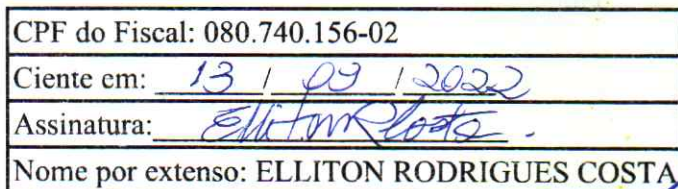 CPF do Fiscal: 080.740.156-02
Ciente em: 13 / 09 / 2022
Assinatura: Elliton R Costa.
Nome por extenso: ELLITON RODRIGUES COSTA